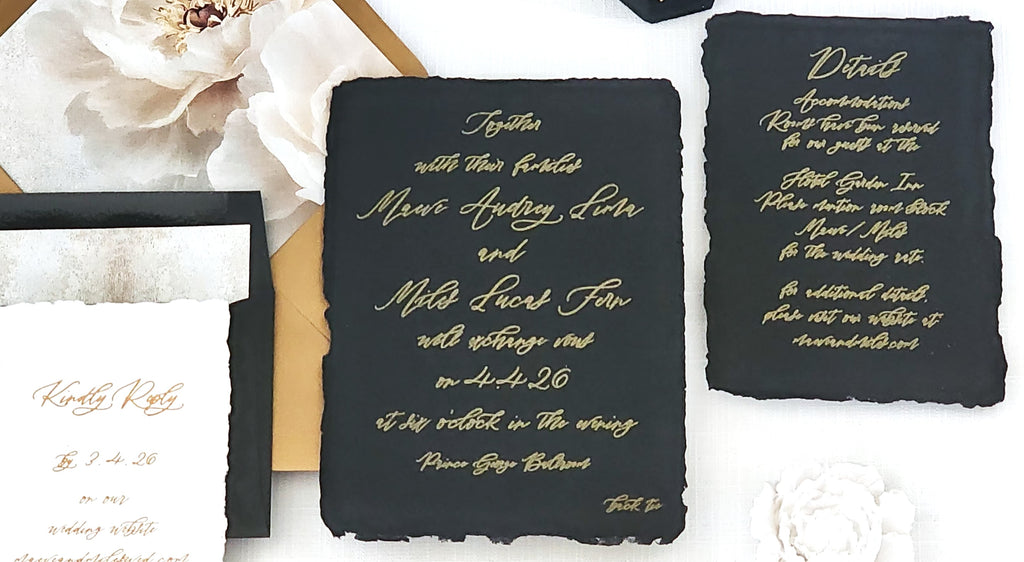 Together
with their families
Maeve Audrey Lima
and
Miles Lucas Fern
will exchange vows
on 4.4.26
at six o'clock in the evening
Prince George Ballroom
black tie
Details
Accommodations
Rooms have been reserved
for our guests at the
Hotel Garden Inn
Please mention room block
Maeve / Miles
for the wedding rate.
for additional details,
please visit our website at
maeveandmiles.com
Kindly Reply
by 3.4.26
on our
wedding website